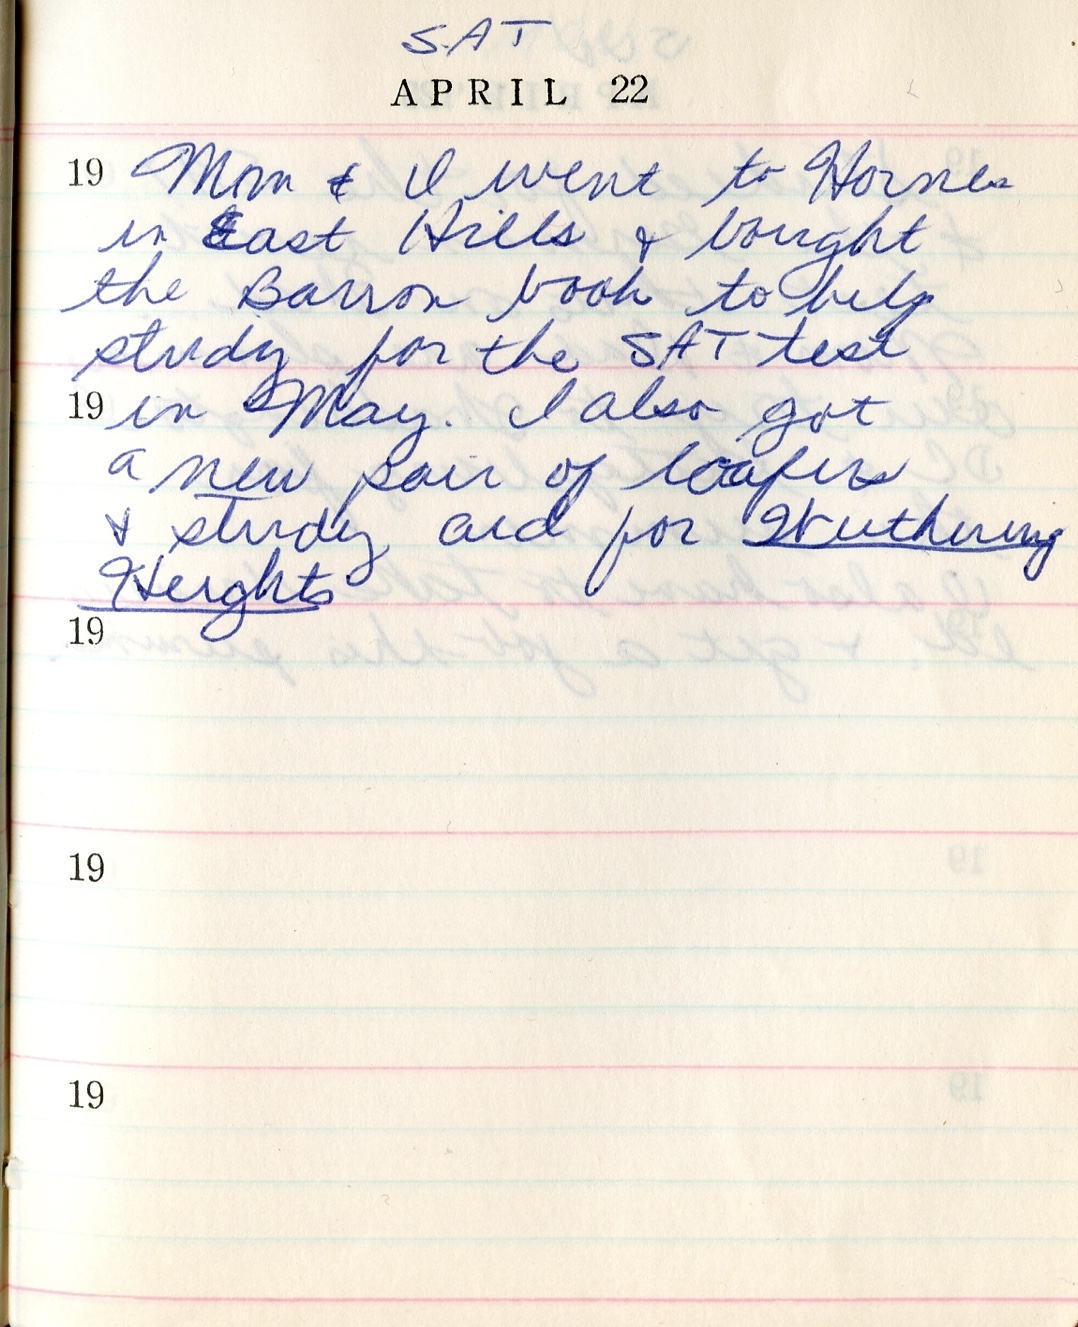 SAT
APRIL 22
19 Mom & I went to Hornes
in East Hills & bought
the Barron book to help
study for the SAT test
19 in May. I also got
a new pair of loafers
& study aid for Wuthering
Heights
19
19
19